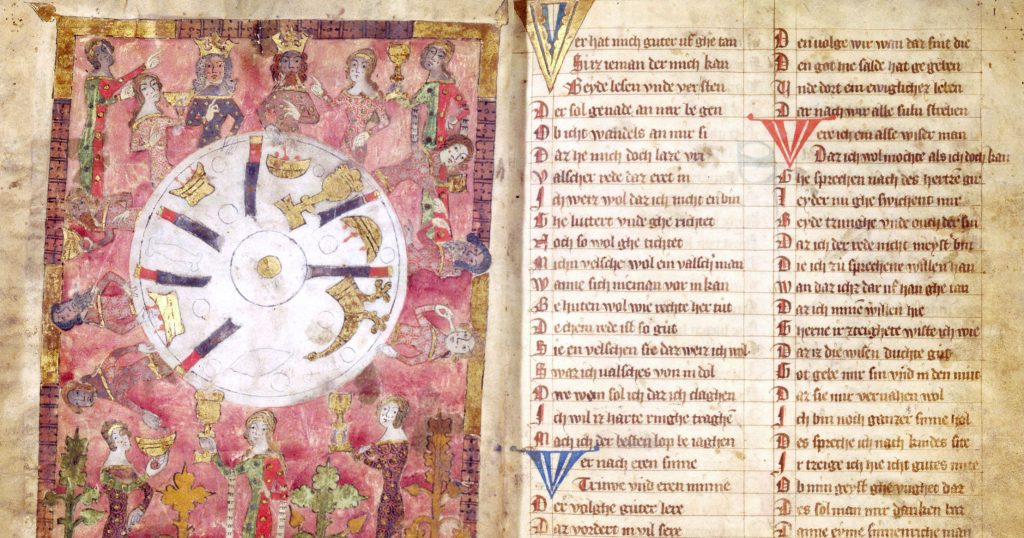 VVer hat mich guter uf ghe tan
Si iz ieman der mich kan
Beyde lesen vnde versten
Der sol genade an mir be gen
Ob icht wandels an mir si
Daz he mich doch laze vri
Valscher rede daz eret in
Ich weiz wol daz ich nicht en bin
Ghe lutert vnde ghe richtet
Noch so wol ghe tichtet
Mich velsche wol ein valsch man
Wanne sich nieman vor in kan
Be huten wol wie rechte her tut
De chein rede ist so gut
Sie en velschen sie daz weiz ich wol
Swaz ich valsches von in dol
Owe wem sol ich daz claghen
Ich wil iz harte ringhe traghen
Mach ich der besten lop be iaghen
Wer nach eren sinne
Truwe vnd eren minne
Der volghe guter lere
Daz vordert in vil sere
Den volge wir wan daz sint die
Den got hie salde hat ge geben
Vnde dort ein ewiglichez leben
Dar nach wir alle suln streben
Were ich ein alse wiser man
Daz ich wol mochte als ich doch kan
Ghe sprechen nach des hertzen gir
Leyder nu ghe swichent mir
Beyde tzunghe vnde ouch der sin
Daz ich der rede nicht meyster bin
Die ich zu sprechene willen han
Wan daz ich daz vf han ghe tan
Daz ich minen willen hie
Gherne er zeighete wiste ich wie
Daz iz die wisen duchte gut
Got gebe mir sin vnd in den mut
Daz sie mir vernahen wol
Ich bin noch gantzer sinne hol
Des spreche ich nach kindes site
Ir tzeige ich hie icht gutes mite
Ob min geyst ghe vughet daz
Des sol man mir danken baz
Danne eyme sinnenriche man